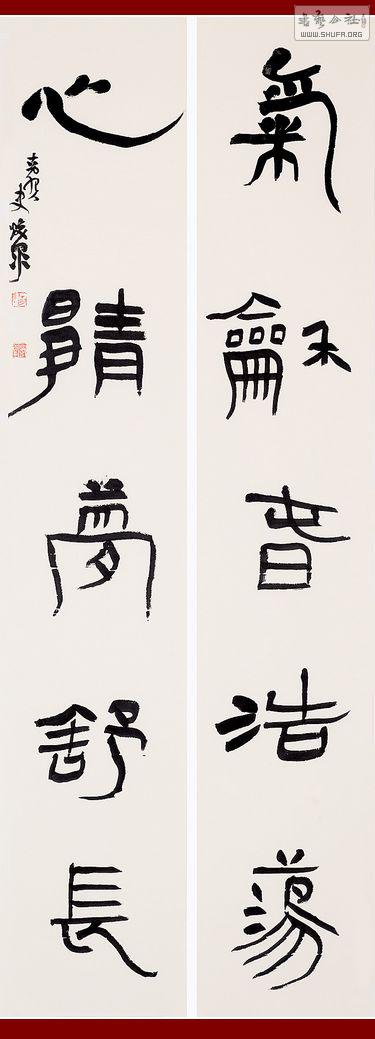 氣龢旾浩蕩
心靜夢舒長
書藝公社
WWW.SHUFA.ORG